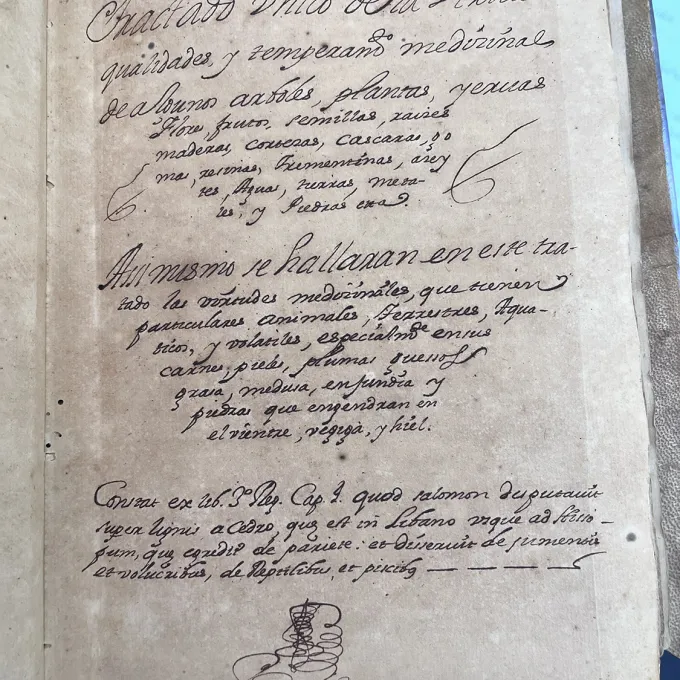 Tractado Vnico de la
qualidades, y temperam.to medizinal
de algunos arboles, plantas, yeruas
flores, frutos, semillas, raizes
maderas, cortezas, cascaras, go
mas, resinas, Trementinas, azey
tes, Agua, tierras, meta-
les, y Piedras etta.
Asi mismo se hallaran en este tra-
tado las virtudes medizinales, que tienen
particulares animales, Terrestres, Aqua-
ticos, y volatiles, especialm.te en sus
carnes, pieles, plumas guessos
grasa, medusa, enjundia y
piedras que engendran en
el vientre, vegiga, y hiel.
Constat ex lib. 3.o Reg. Cap. quod salomon disputauit
super lignis a Cedro, que est in Libano vsque ad hisso-
pum, que egredit de pariete: et diseruit de jumentis
et volucribus, de Reptilibus, et piscibg